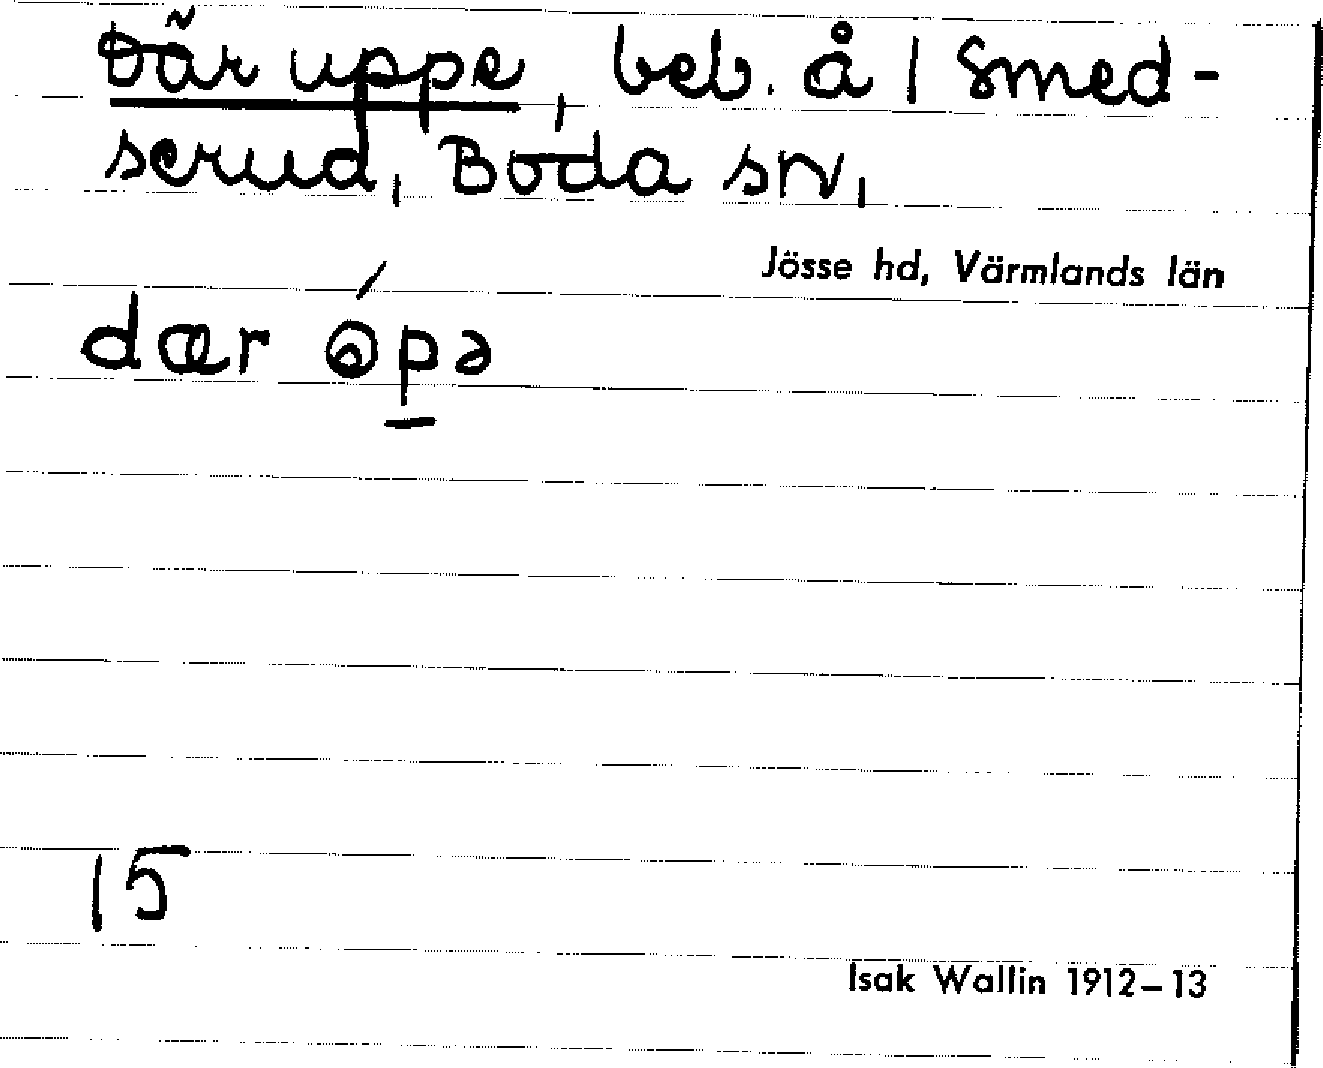 Där uppe, beb. å 1 Smed-
serud, Boda sn,
Jösse hd, Värmlands län
dær
15
Isak Wallin 1912–13